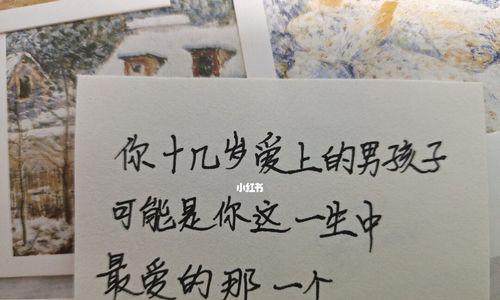 你十几岁爱上的男孩子
小红书
可能是你这一生中
最爱的那一个